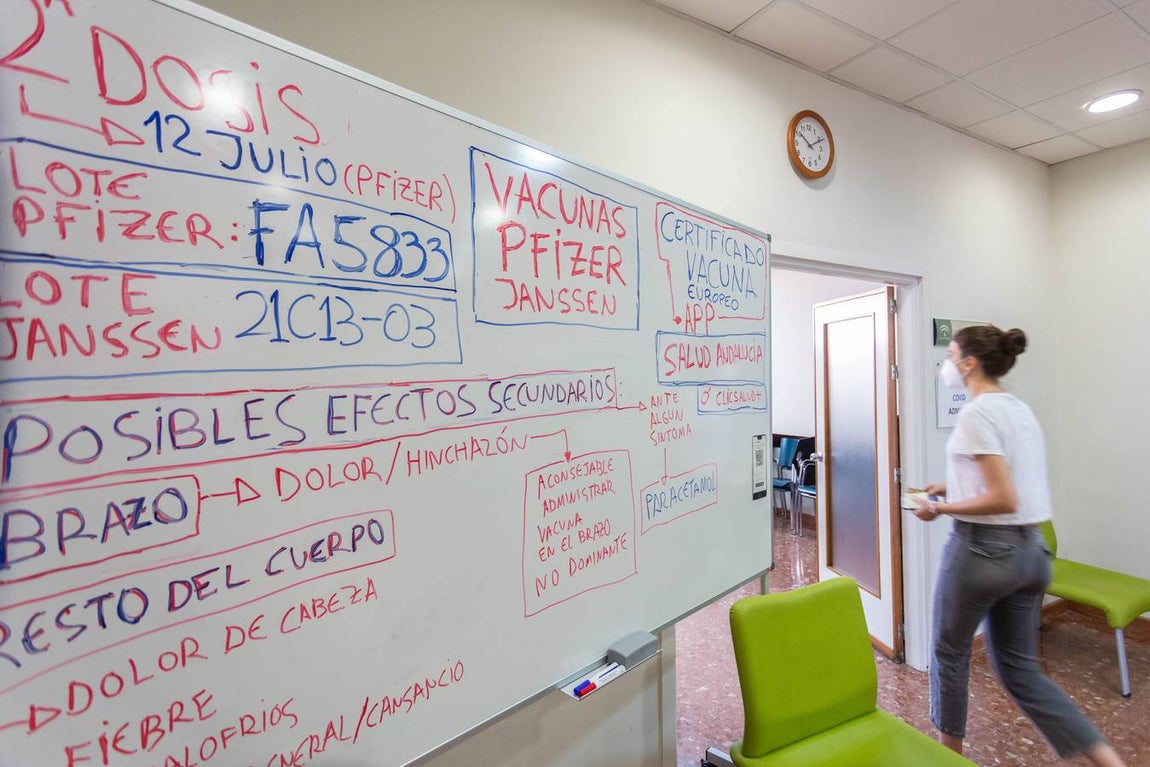 2ª DOSIS
12 JULIO (PFIZER)
LOTE
PFIZER: FA5833
LOTE
JANSSEN 21C13-03
VACUNAS
PFIZER
JANSSEN
CERTIFICADO
VACUNA
EUROPEO
APP
SALUD ANDALUCIA
Ó CLICSALUD+
POSIBLES EFECTOS SECUNDARIOS:
ANTE
ALGÚN
SINTOMA
PARACÉTAMOL
BRAZO
DOLOR/HINCHAZÓN
ACONSEJABLE
ADMINISTRAR
VACUNA
EN EL BRAZO
NO DOMINANTE
RESTO DEL CUERPO
DOLOR DE CABEZA
FIEBRE
ALOFRIOS
GENERAL/CANSANCIO
COVID